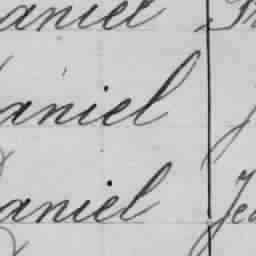 aniel
aniel
aniel Jea